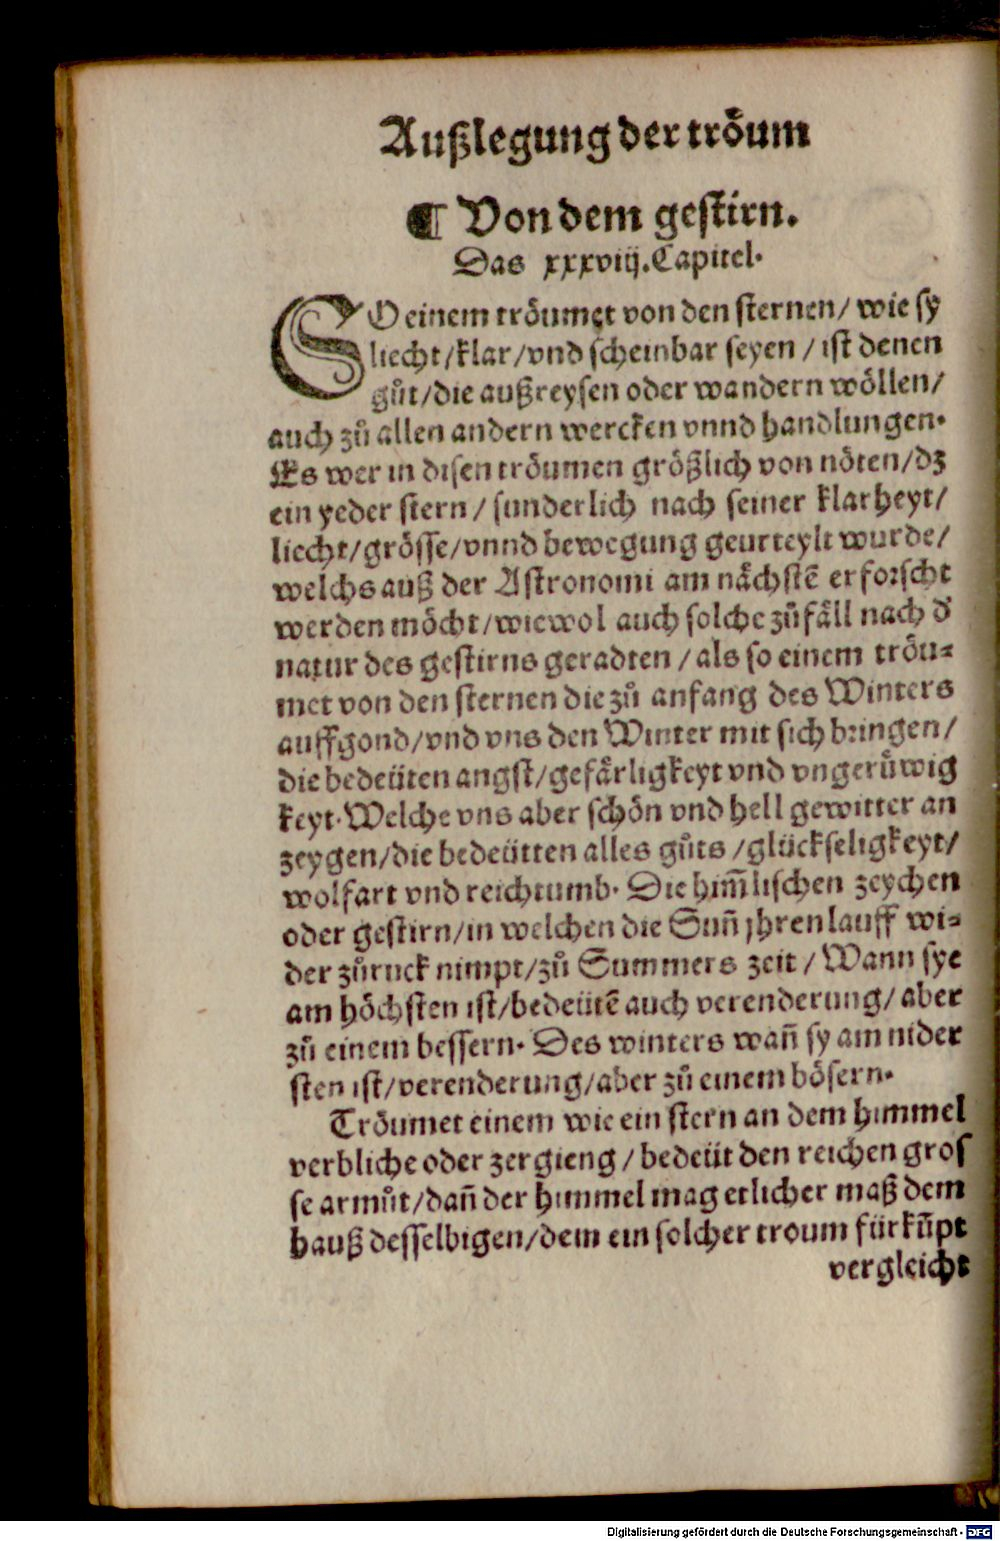 Außlegung der tröum
¶ Von dem gestirn.
Das xxxviij. Capitel.
SO einem tröumet von den sternen / wie sy
liecht / klar / vnd scheinbar seyen / ist denen
gůt / die außreysen oder wandern wöllen /
auch zů allen andern wercken vnnd handlungen.
Es wer in disen tröumen größlich von nöten / dz
ein yeder stern / sunderlich nach seiner klarheyt /
liecht / grösse / vnnd bewegung geurteylt wurde /
welchs auß der Astronomi am nächstẽ erforscht
werden möcht / wiewol auch solche zůfäll nach d'
natur des gestirns geradten / als so einem tröu-
met von den sternen die zů anfang des Winters
auffgond / vnd vns den Winter mit sich bringen /
die bedeüten angst / gefärligkeyt vnd vngerůwig
keyt. Welche vns aber schön vnd hell gewitter an
zeygen / die bedeütten alles gůts / glückseligkeyt /
wolfart vnd reichtumb. Die him̃lischen zeychen
oder gestirn / in welchen die Sun̄ jhren lauff wi-
der zůruck nimpt / zů Summers zeit / Wann sye
am höchsten ist / bedeütẽ auch verenderung / aber
zů einem bessern. Des winters wan̄ sy am nider
sten ist / verenderung / aber zů einem bösern.
Tröumet einem wie ein stern an dem himmel
verbliche oder zergieng / bedeüt den reichen gros
se armůt / dan̄ der himmel mag etlicher maß dem
hauß desselbigen / dem ein solcher troum fürkũpt
vergleicht
Digitalisierung gefördert durch die Deutsche Forschungsgemeinschaft - DFG